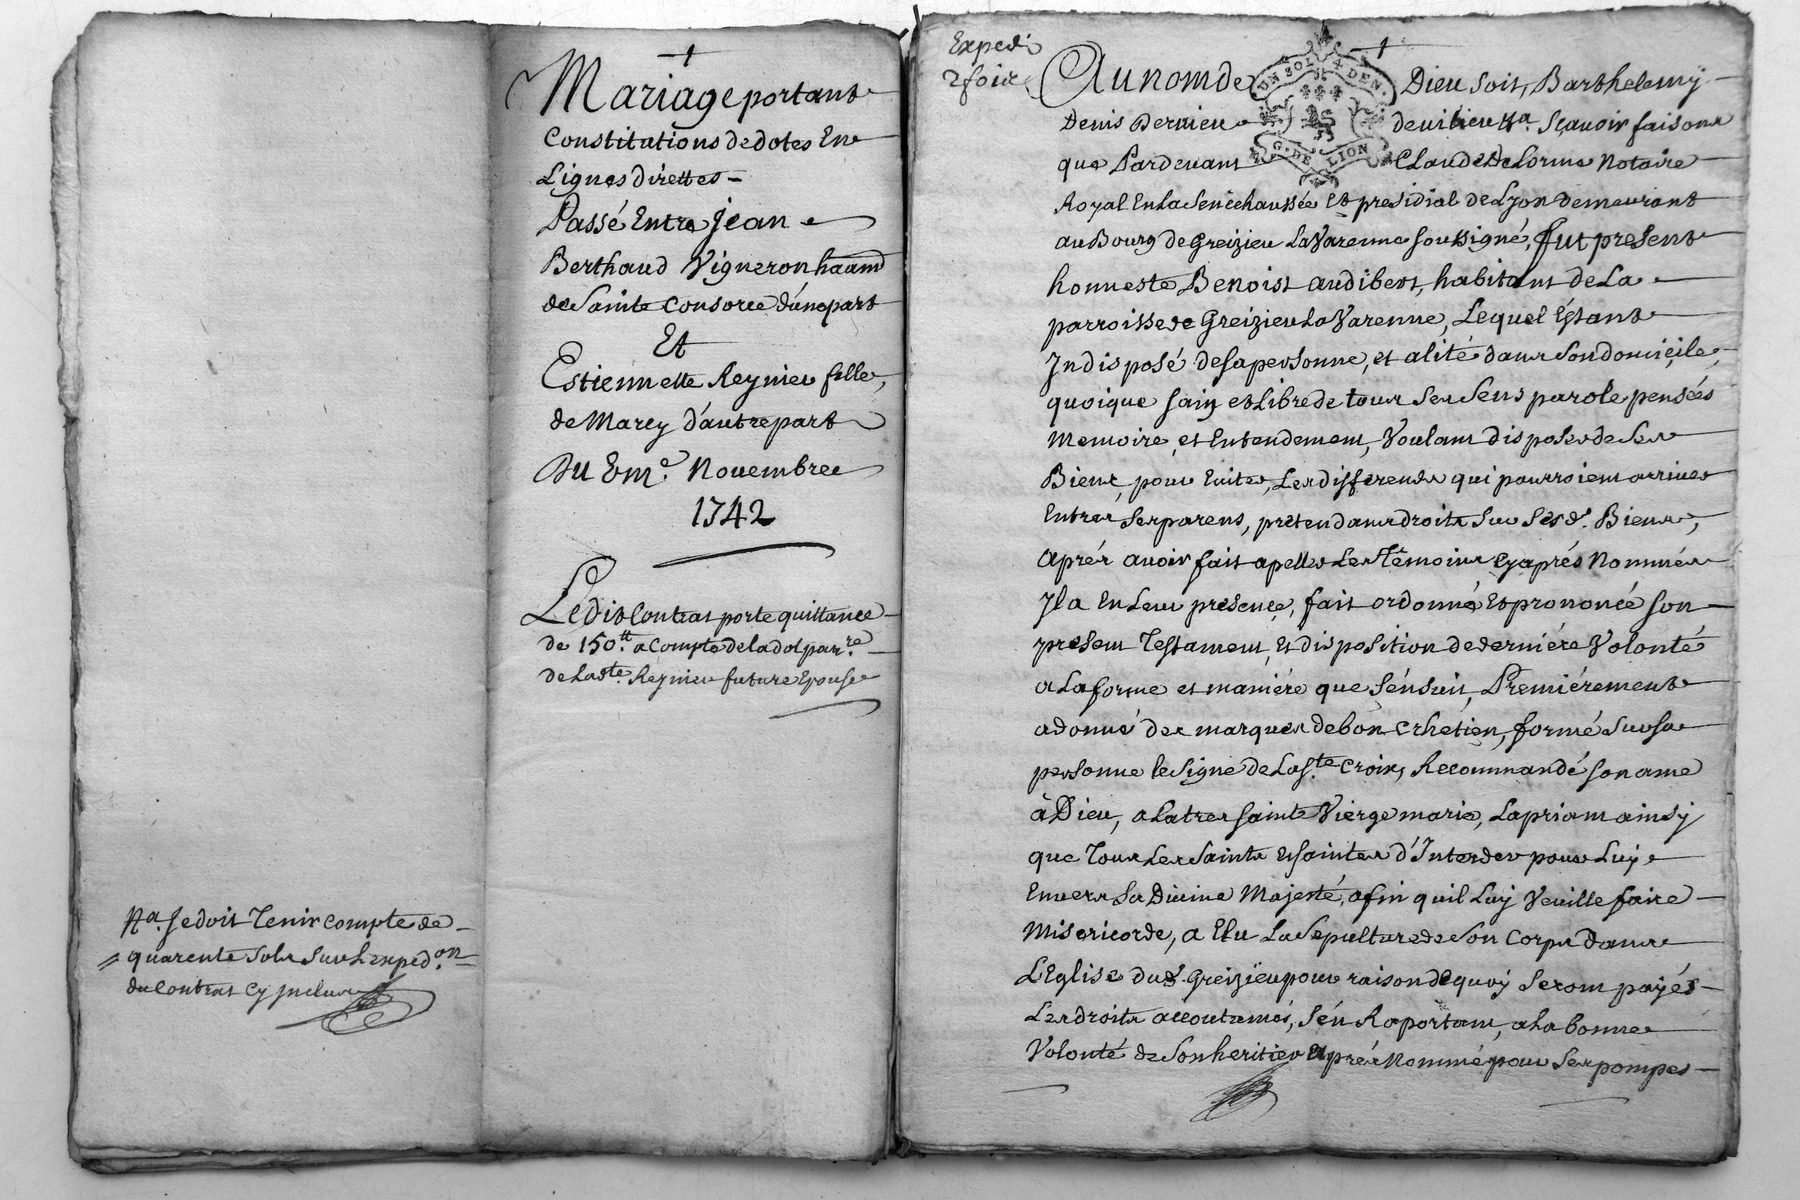 Mariage portant
Constitutions de dotes En
Lignes direttes –
Passé Entre Jean
Berthaud Vigneron haant
de Sainte Consorce d'une part
Et
Estiennette Reynier fille,
de Marcy d'autre part
Du 8me. Novembre
1742
Ledit Contrat porte quittance
de 150tt. a Compte de la dot par re.
de Lad te. Reynier future Epouse
Na. Je dois Tenir Compte de
quarente Sols Sur L'exped.on
du Contrat Cy Inclus
Expedi
2 fois
Au nom de Dieu soit, Barthelemy
UN SOL 4 DEN.
G. DE LION
Denis Dervieu de Sçavoir faisons
que Pardevant Claude Delorme Notaire
Royal En La Senechaussée Et presidial de Lyon demeurant
au Bourg de Greizieu La Varenne soussigné, fut present
honneste Benoist audibert, habitant de La
parroisse de Greizieu La Varenne, Lequel Estant
Indisposé de sa personne, et alité dans son domicile,
quoique sain et Libre de tous Ses Sens parole pensées
Memoire, et Entendement, Voulant disposer de Ses
Biens, pour Eviter, Les differends qui pourroient arriver
Entre Ses parens, pretendans droits Sur Ses d. Biens,
aprés avoir fait apeller Les Témoins Cy aprés Nommés
Il a En Leur presence, fait ordonné Et prononcé son
present Testament, Et disposition de derniére Volonté
a La forme et maniére que s'énsuit, Premiérement
a donné des marques de bon Crhetien, formé Sur sa
personne le Signe de La Ste. Croix, Recommandé son ame
à Dieu, a La tres sainte Vierge marie, La priant ainsy
que Tous Les Saints Et saintes d'Interceder pour Luy
Envers Sa Divine Majesté, afin qu'il Luy Veuille faire
Misericorde, a Elu La Sepulture de Son Corps dans
L'Eglise dud. Greizieu pour raison de quoy Seront payés
Les droits accoutumés, S'én Raportant, a La bonne
Volonté de Son heritier aprés Nommé pour Ses pompes